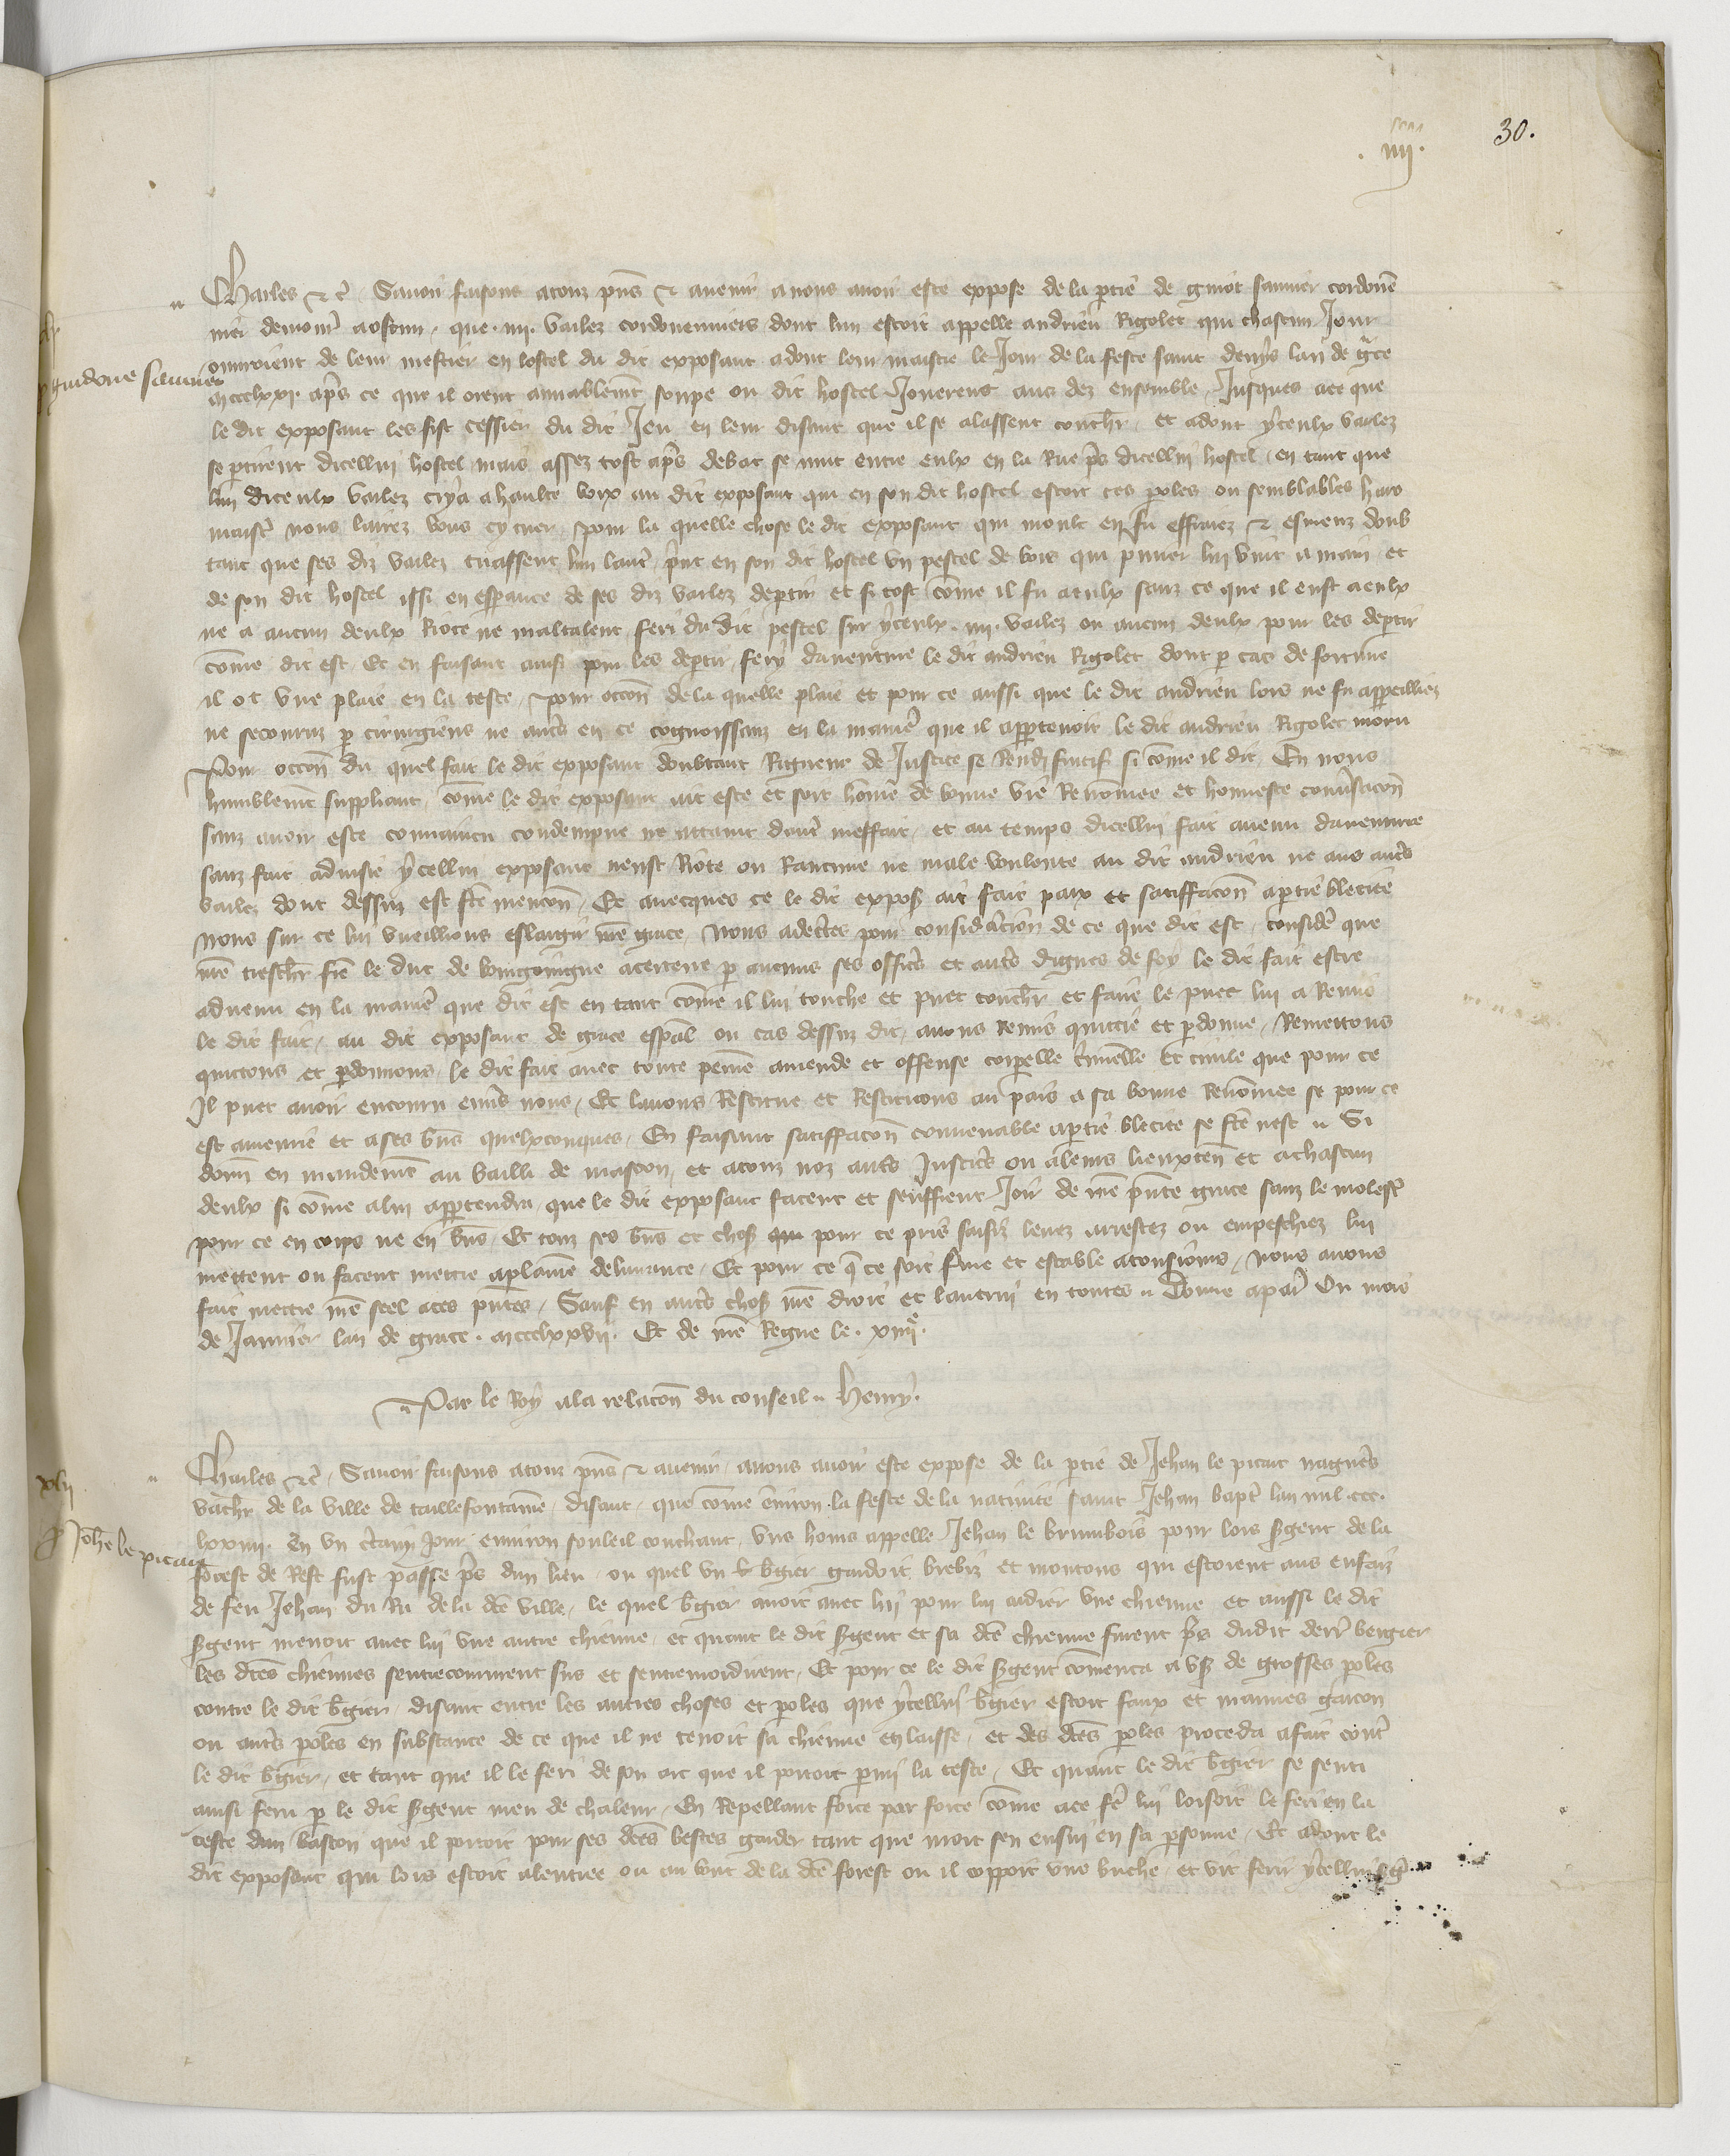 30.
. iiii .
Charles &c. Savoir faisons a touz pñs & avenir a nous avoir este expose de la ptie de guiot saunier cordoue
nier demour a ostun, que .iiii. vailez cordouenniers dont lun estoit appelle andrieu Rigolet qui chascun Jour
ouvroient de leur mestier en lostel du dit exposant adont leur maistre le Jour de la feste saint denys lan de grce
mccclxxi apres ce que il orent amiablemt soupe ou dit hostel Jouerent aus dez ensemble, Jusques ace que
le dit exposant les fist cessier du dit Jeu en leur disant que il se alassent couchr, et adont yceulx vailez
se ptirent dicellui hostel mais assez tost apres debat se mut entre eulx en la Rue pres dicellui hostel, en tant que
lun diceulx vailez crya a haulte voix au dit exposant qui en son dit hostel estoit ces poles ou semblables haro
maistr nous lairez vous cy tuer, pour la quelle chose le dit exposant qui moult en fu effraez & esmeuz doub
tant que ses diz vailez tuassent lun lautre, print en son dit hostel un pestel de bois qui pmier lui vint a main et
de son dit hostel issi en espance de ses diz vailez deptir et si tost come il fu aeulx sanz ce que il eust aeulx
ne a aucun deulx Riote ne maltalent feri du dit pestel sur yceulx .iiii. vailez ou aucun deulx pour les deptir
come dit est, Et en faisant ainsi pour les deptir, fery daventure le dit andrieu Rigolet dont p cas de fortune
il ot une plaie en la teste, pour occon de la quelle plaie et pour ce aussi que le dit andrieu lors ne fu appeilliez
ne secouruz p cirurgiens ne autrs en ce cognoissanz en la maniere que il apptenoit le dit andrieu Rigolet moru
Pour occon du quel fait le dit exposant doubtant Rigueur de Justice se Rendi fuitif si come il dit, En nous
humblemt suppliant, come le dit exposant ait este et soit home de bonne vie Renomee et honneste conversacon
sanz avoir este convaincu condempne ne attaint dautre meffait, et au temps dicellui fait avenu daventure
sanz fait advisie ycellui exposant neust Riote ou Rancune ne male voulonte au dit andrieu ne aus autrs
vailez dont dessuz est fte mencon, Et avecques ce le dit expos ait fait paix et satiffacon aptie bleciee
Nous sur ce lui vueillions eslargir nre grace, Nous adecertes pour consideracion de ce que dit est, considere que
nre treschr frere le duc de bourgoingne acertene p aucuns ses officrs et autrs dignes de foy le dit fait estre
advenu en la maniere que dit est en tant come il lui touche et puet touchr et faire le puet lui a Remis
le dit fait, au dit exposant de grace espal ou cas dessuz dit, avons Remis quictie et pdonne, Remettons
quictons et pdonnons, le dit fait avec toute peine amende et offense corpelle criminelle et civile que pour ce
Il puet avoir encouru envers nous, Et lavons Restitue et Restituons au pais a sa bonne Renomee se pour ce
est amenrie et a ses biens quelxconques, En faisant satiffacon convenable aptie bleciee se fte nest Si
donn en mandemt au bailli de mascon, et a touz noz autrs Justicrs ou a leurs lieuxten et achascun
deulx si come alui apptendra, que le dit exposant facent et seuffrent Joir de nre pnte grace sanz le molester
pour ce en corps ne en biens, Et touz ses biens et choses pour ce pris saisiz levez arrestez ou empeschiez lui
mettent ou facent mettre aplaine delivrance, Et pour ce q ce soit ferme et estable a tousjours, Nous avons
fait mettre nre seel aces pntes, Sauf en autrs choses nre droit et lautrui en toutes Donne a paris Ou mois
de Janvier lan de grace . mccclxxvii. Et de nre Regne le . xiiiie.
Par le Roy ala relacon du conseil Henry.
Charles &c. Savoir faisons a touz pñs & avenir, a nous avoir este expose de la ptie de Jehan le picart nagueres
vachr de la ville de taillefontaine, disant, que come environ la feste de la nativite saint Jehan bapte lan mil .ccc.
lxxiiii. En un certain Jour environ souleil couchant, uns homs appelle Jehan le brumbois pour lors sergent de la
forest de Rest fust passe pres dun lieu, ou quel un bergier gardoit brebiz et moutons qui estoient aus enfanz
de feu Jehan du Ru de la dte ville, le quel bergier avoit avec lui pour lui aidier une chienne et aussi le dit
sergent menoit avec lui une autre chienne, et quant le dit sergent et sa dte chienne furent pres dudit derr bergier
les dtes chiennes sentrecoururent sus et sentremordirent, Et pour ce le dit sergent comenca a user de grosses poles
contre le dit bergier, disant entre les autres choses et poles que ycellui bergier estoit faux et mauves garcon
ou autrs poles en substance de ce que il ne tenoit sa chienne en laisse, et des dtes poles proceda afait contr
le dit bergier, et tant que il le feri de son arc que il portoit parmi la teste, Et quant le dit bergier se senti
ainsi feru p le dit sergent meu de chaleur, En Repellant force par force come ace fere lui loisoit le feri en la
teste dun baston que il portoit pour ses dtes bestes garder tant que mort sen ensui en sa psonne, Et adont le
dit exposant qui lors estoit alentree ou au bout de la dte forest ou il coppoit une buche, et vit ferir ycellui serg
guidone saunier
xlii
Johe le picart